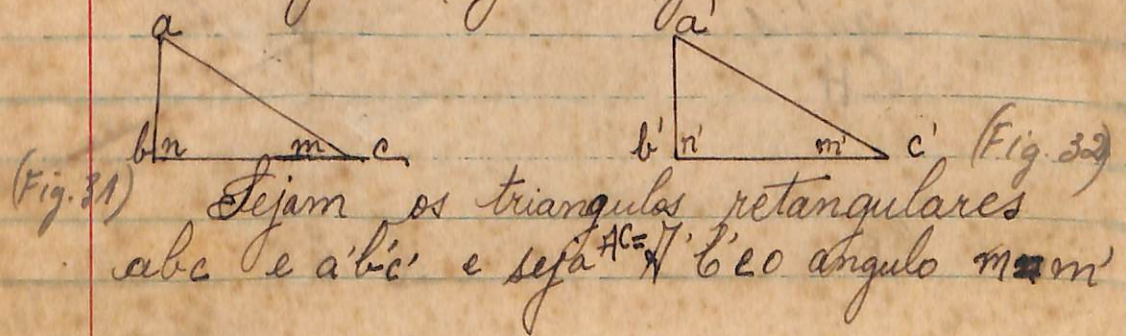 a a'
b n m c b' n' m' c' (Fig. 32)
(Fig. 31) Sejam os triangulos retangulares
abc e a'b'c' e seja AC= A' b' e o angulo m=m'